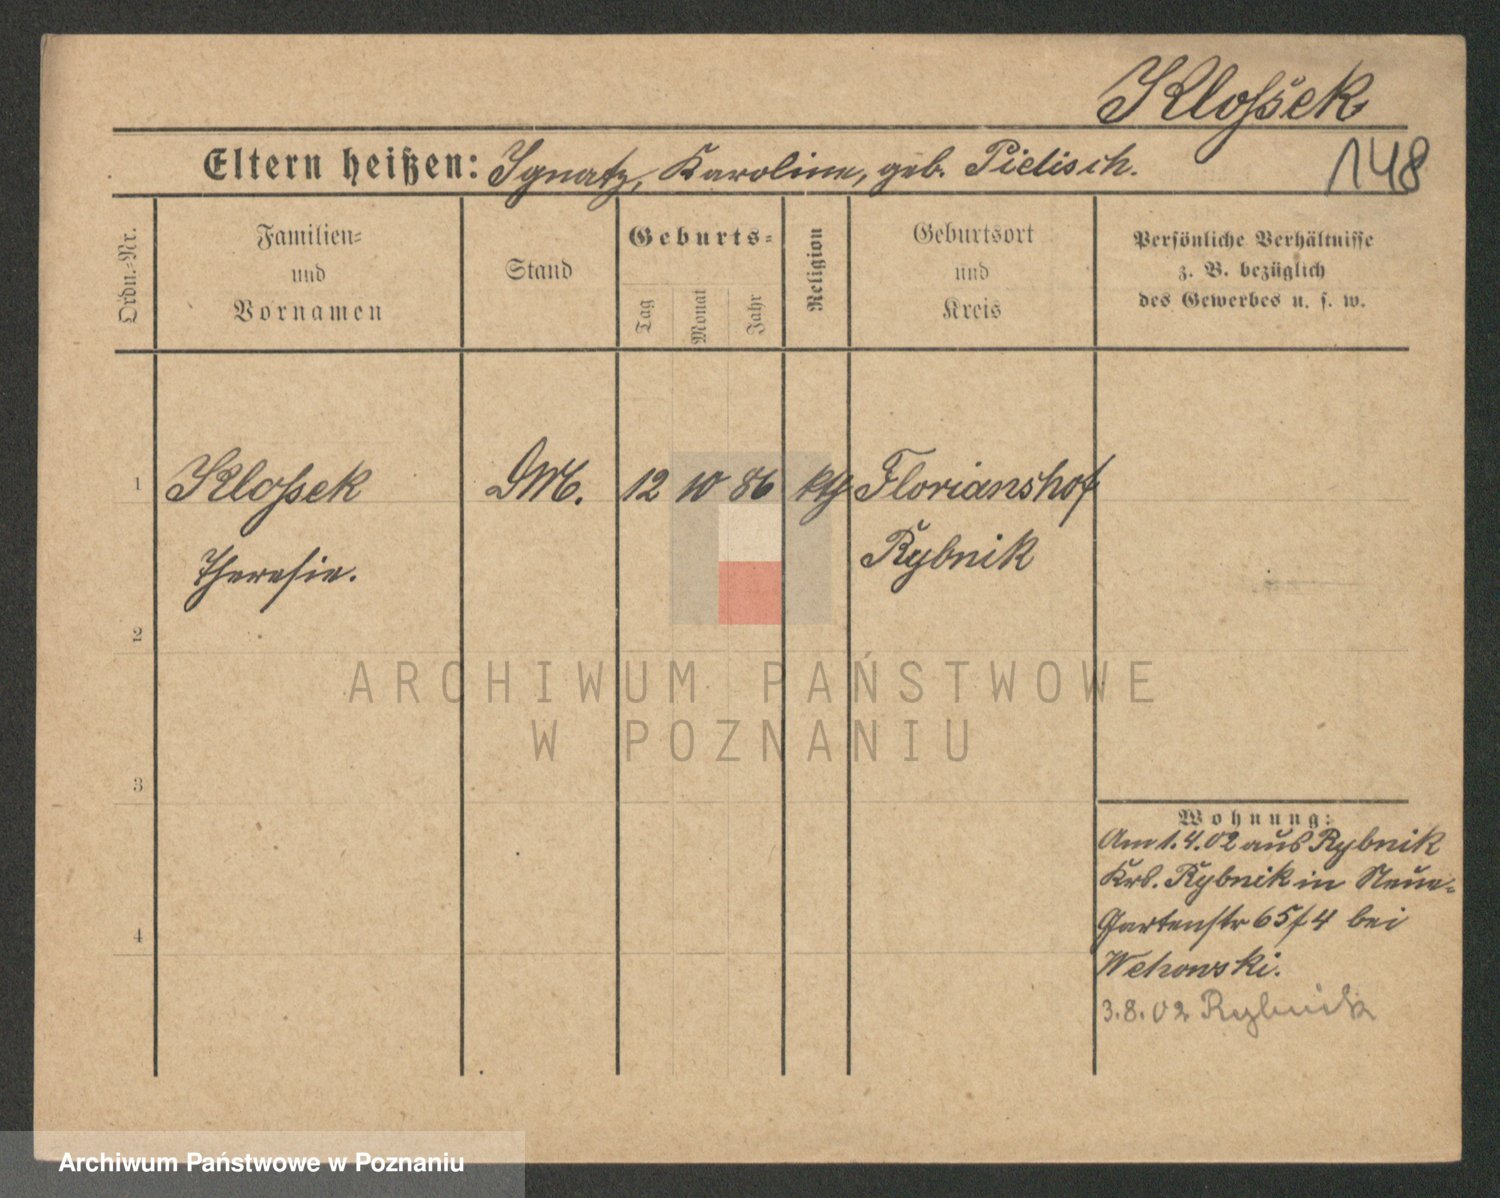 Klossek
148
Eltern heißen: Ignatz, Karoline, geb. Pietisch.
Ordn.-Nr.
Familien-
und
Vornamen
Stand
Geburts-
Tag
Monat
Jahr
Religion
Geburtsort
und
Kreis
Persönliche Verhältnisse
z. B. bezüglich
des Gewerbes u. s. w.
1 Klossek DM. 12 10 86 kth Florianshof
Theresie. Rybnik
2
3
4
Wohnung:
Am 1.4.02 aus Rybnik
Krs. Rybnik in Neue-
Gartenstr 65/4 bei
Wehowski.
3.8.02 Rybnik
ARCHIWUM PAŃSTWOWE
W POZNANIU
Archiwum Państwowe w Poznaniu